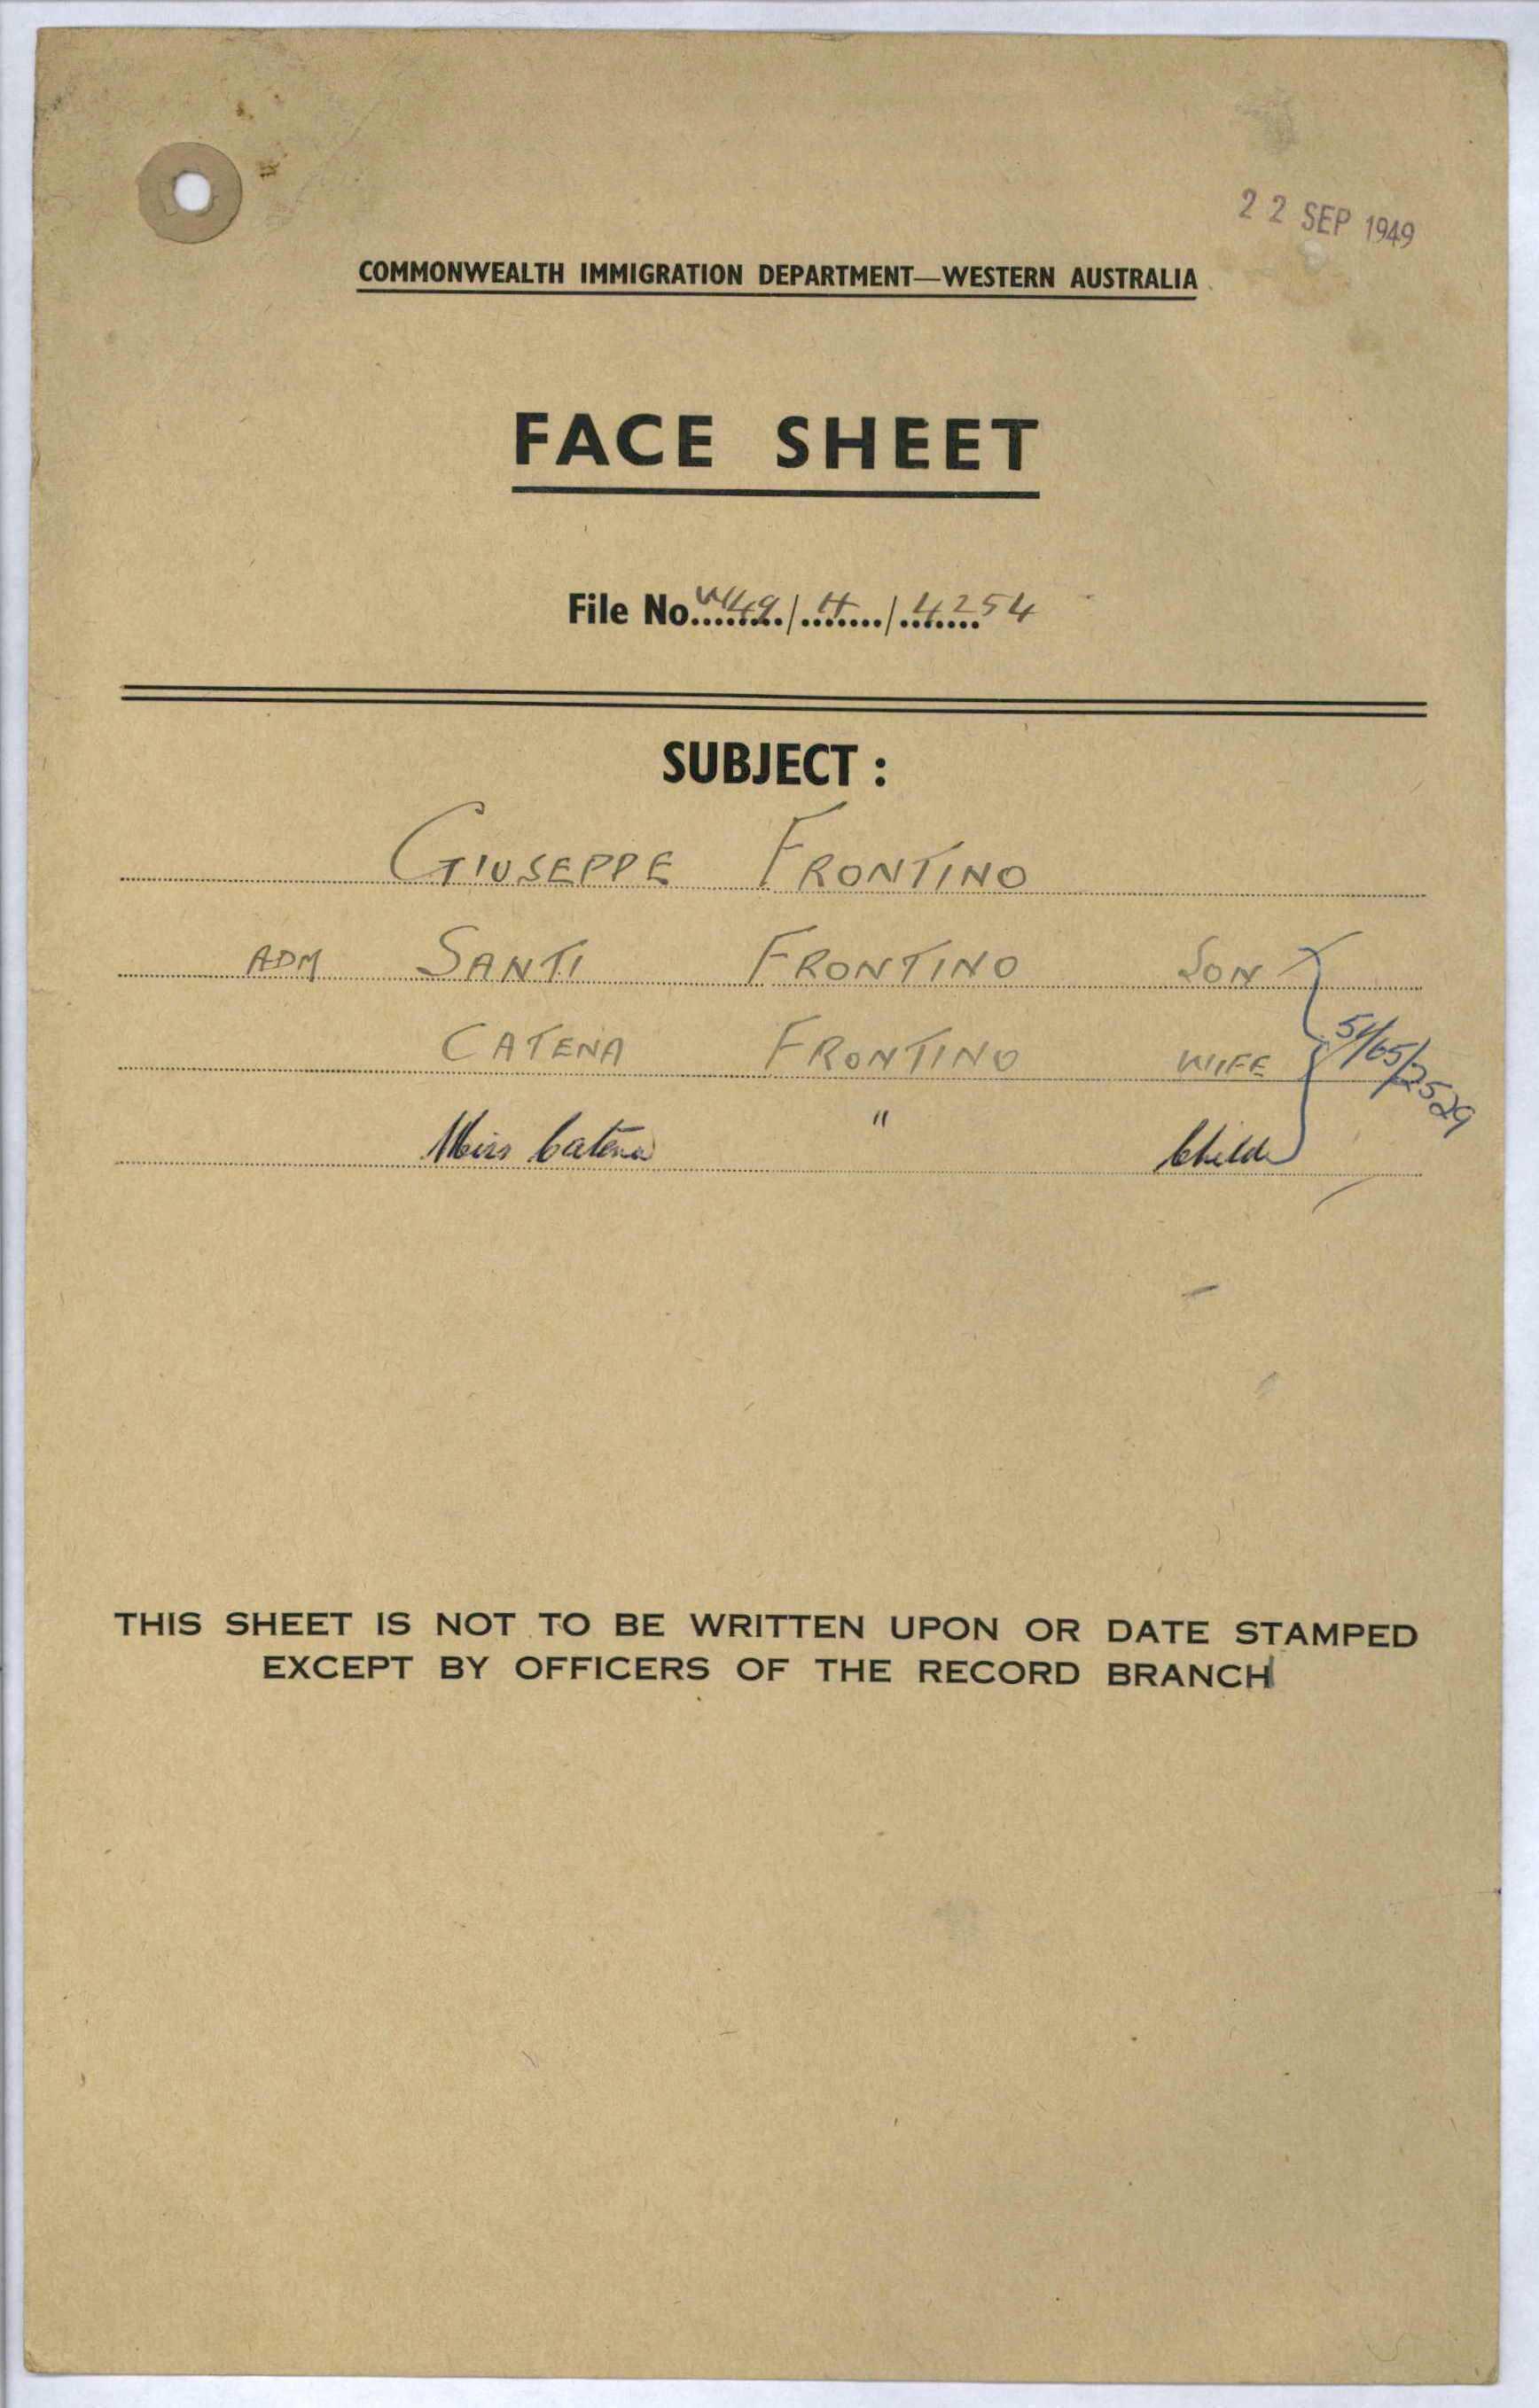 22 SEP 1949
COMMONWEALTH IMMIGRATION DEPARTMENT—WESTERN AUSTRALIA
FACE SHEET
File No. W49/4/4254
SUBJECT :
GIUSEPPE FRONTINO
ADM SANTI FRONTINO SON
CATENA FRONTINO WIFE
51/65/2529
Miss Catena " Child
THIS SHEET IS NOT TO BE WRITTEN UPON OR DATE STAMPED
EXCEPT BY OFFICERS OF THE RECORD BRANCH